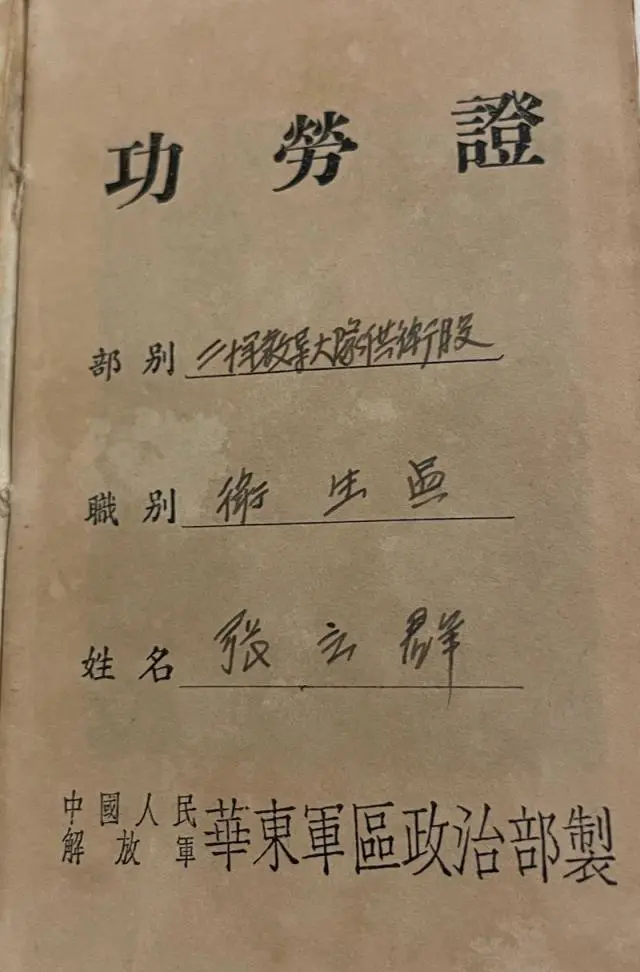 功勞證
部别 二恽教导大隊供衛股
職别 衛生員
姓名 張云群
中國人民
解放軍 華東軍區政治部製